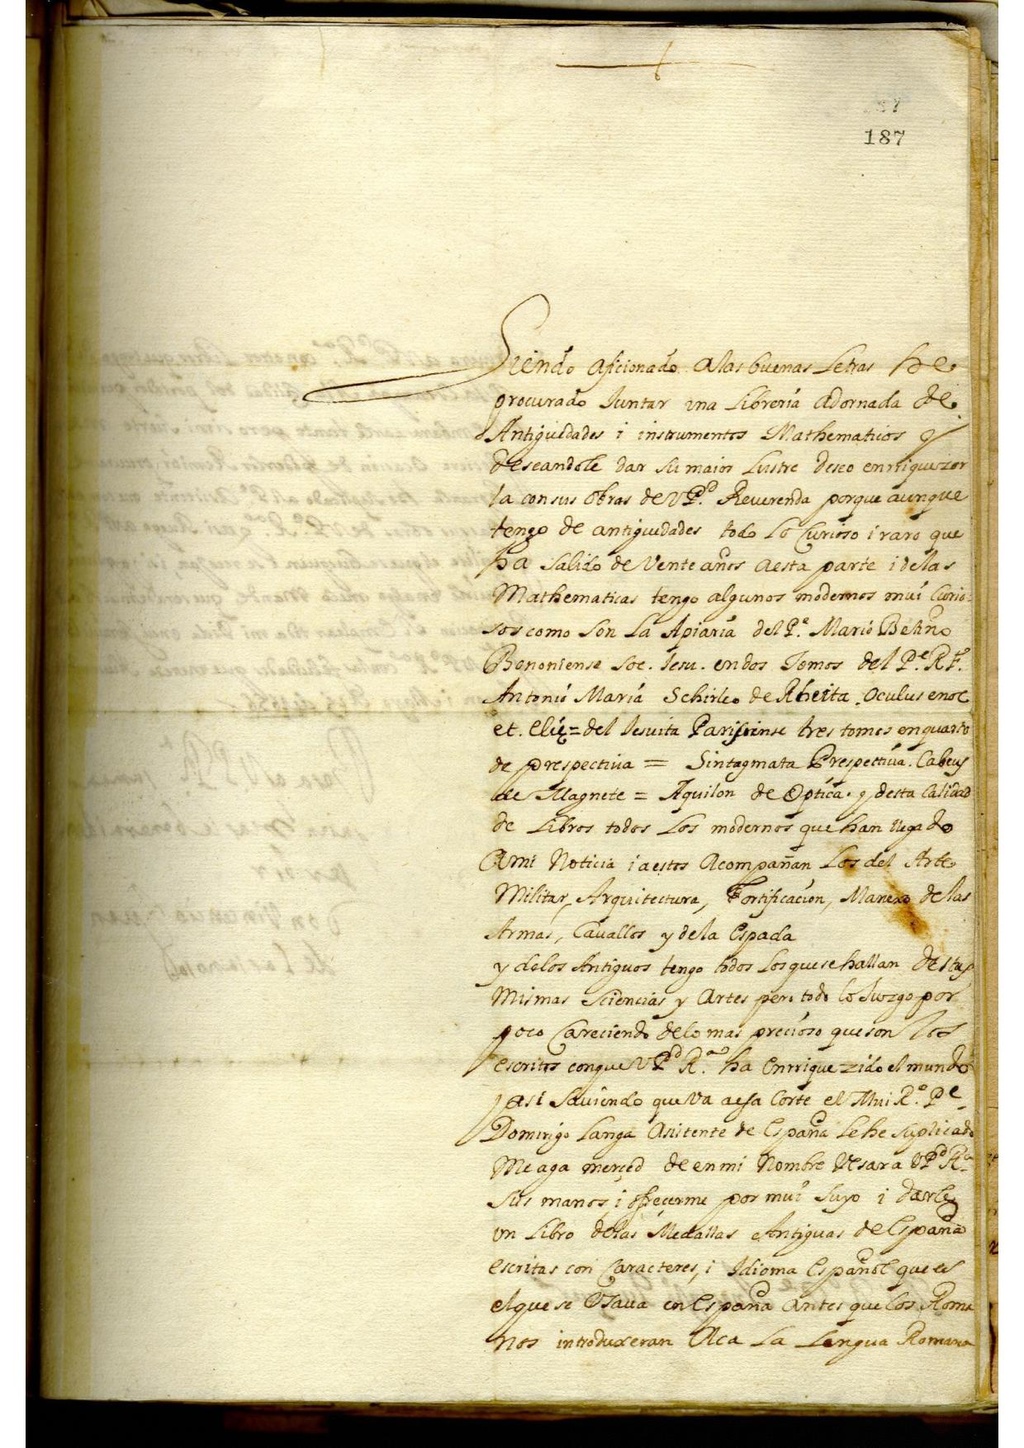 187
Siendo aficionado alas buenas Letras he
procurado Iuntar vna Libreria adornada de
Antiguedades i instrumentos Mathematicos y
deseandole dar su maior Lustre deseo enrriquezer
la con sus obras de VPd. Reuerenda porque aunque
tengo de antiguedades todo Lo Curioso i raro que
ha salido de Vente años aesta parte i delas
Mathematicas tengo algunos modernos mui Curio-
sos como son La Apiaria del Pe. Mario Betino
Bononiense Soc. Iesu. en dos Tomos del Pe. R
Antonio Maria Schirleo de Rheita. Oculus enoc
et. Elię = del Iesuita Parisiense tres tomos en quarto
de prespectiua = Sintagmata Prespectiua. Cabeus
de Magnete = Aquilon de Optica. y desta Calidad
de Libros todos Los modernos que han llegado
Ami Noticia i aestos Acompañan Los del Arte
Militar, Arquitectura, Fortificacion, Manexo de las
Armas, Cauallos y de la Espada
y delos Antiguos tengo todos Los que se hallan destas
Mismas sciencias y Artes pero todo lo Iuzgo por
poco Careciendo de lo mas precioso que son los
escritos con que VPd Rma. ha Enrriquezido el mundo
i asi Sauiendo que Va aesa Corte el Mui Ro. Pe
Domingo Langa Asistente de España Le he Suplicado
Me aga merced de en mi Nombre Vesar a VPd Rma
sus manos i ofrecerme por mui Suyo i darle
vn Libro delas Medallas Antiguas de España
escritas con Caracteres, i Idioma Español que es
el que se Vsaua en España Antes que los Roma
nos introduxeran Aca La Lengua Romana